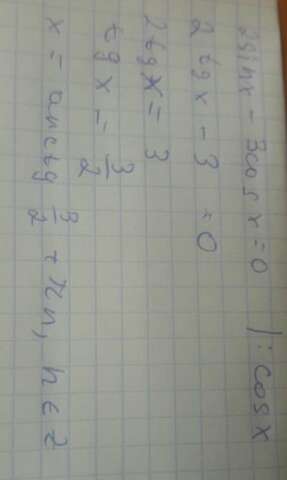 2sinx - 3cosx = 0 | : cosx
2tgx - 3 = 0
2tgx = 3
tgx = 3/2
x = arctg 3/2 + πn, n ∈ z